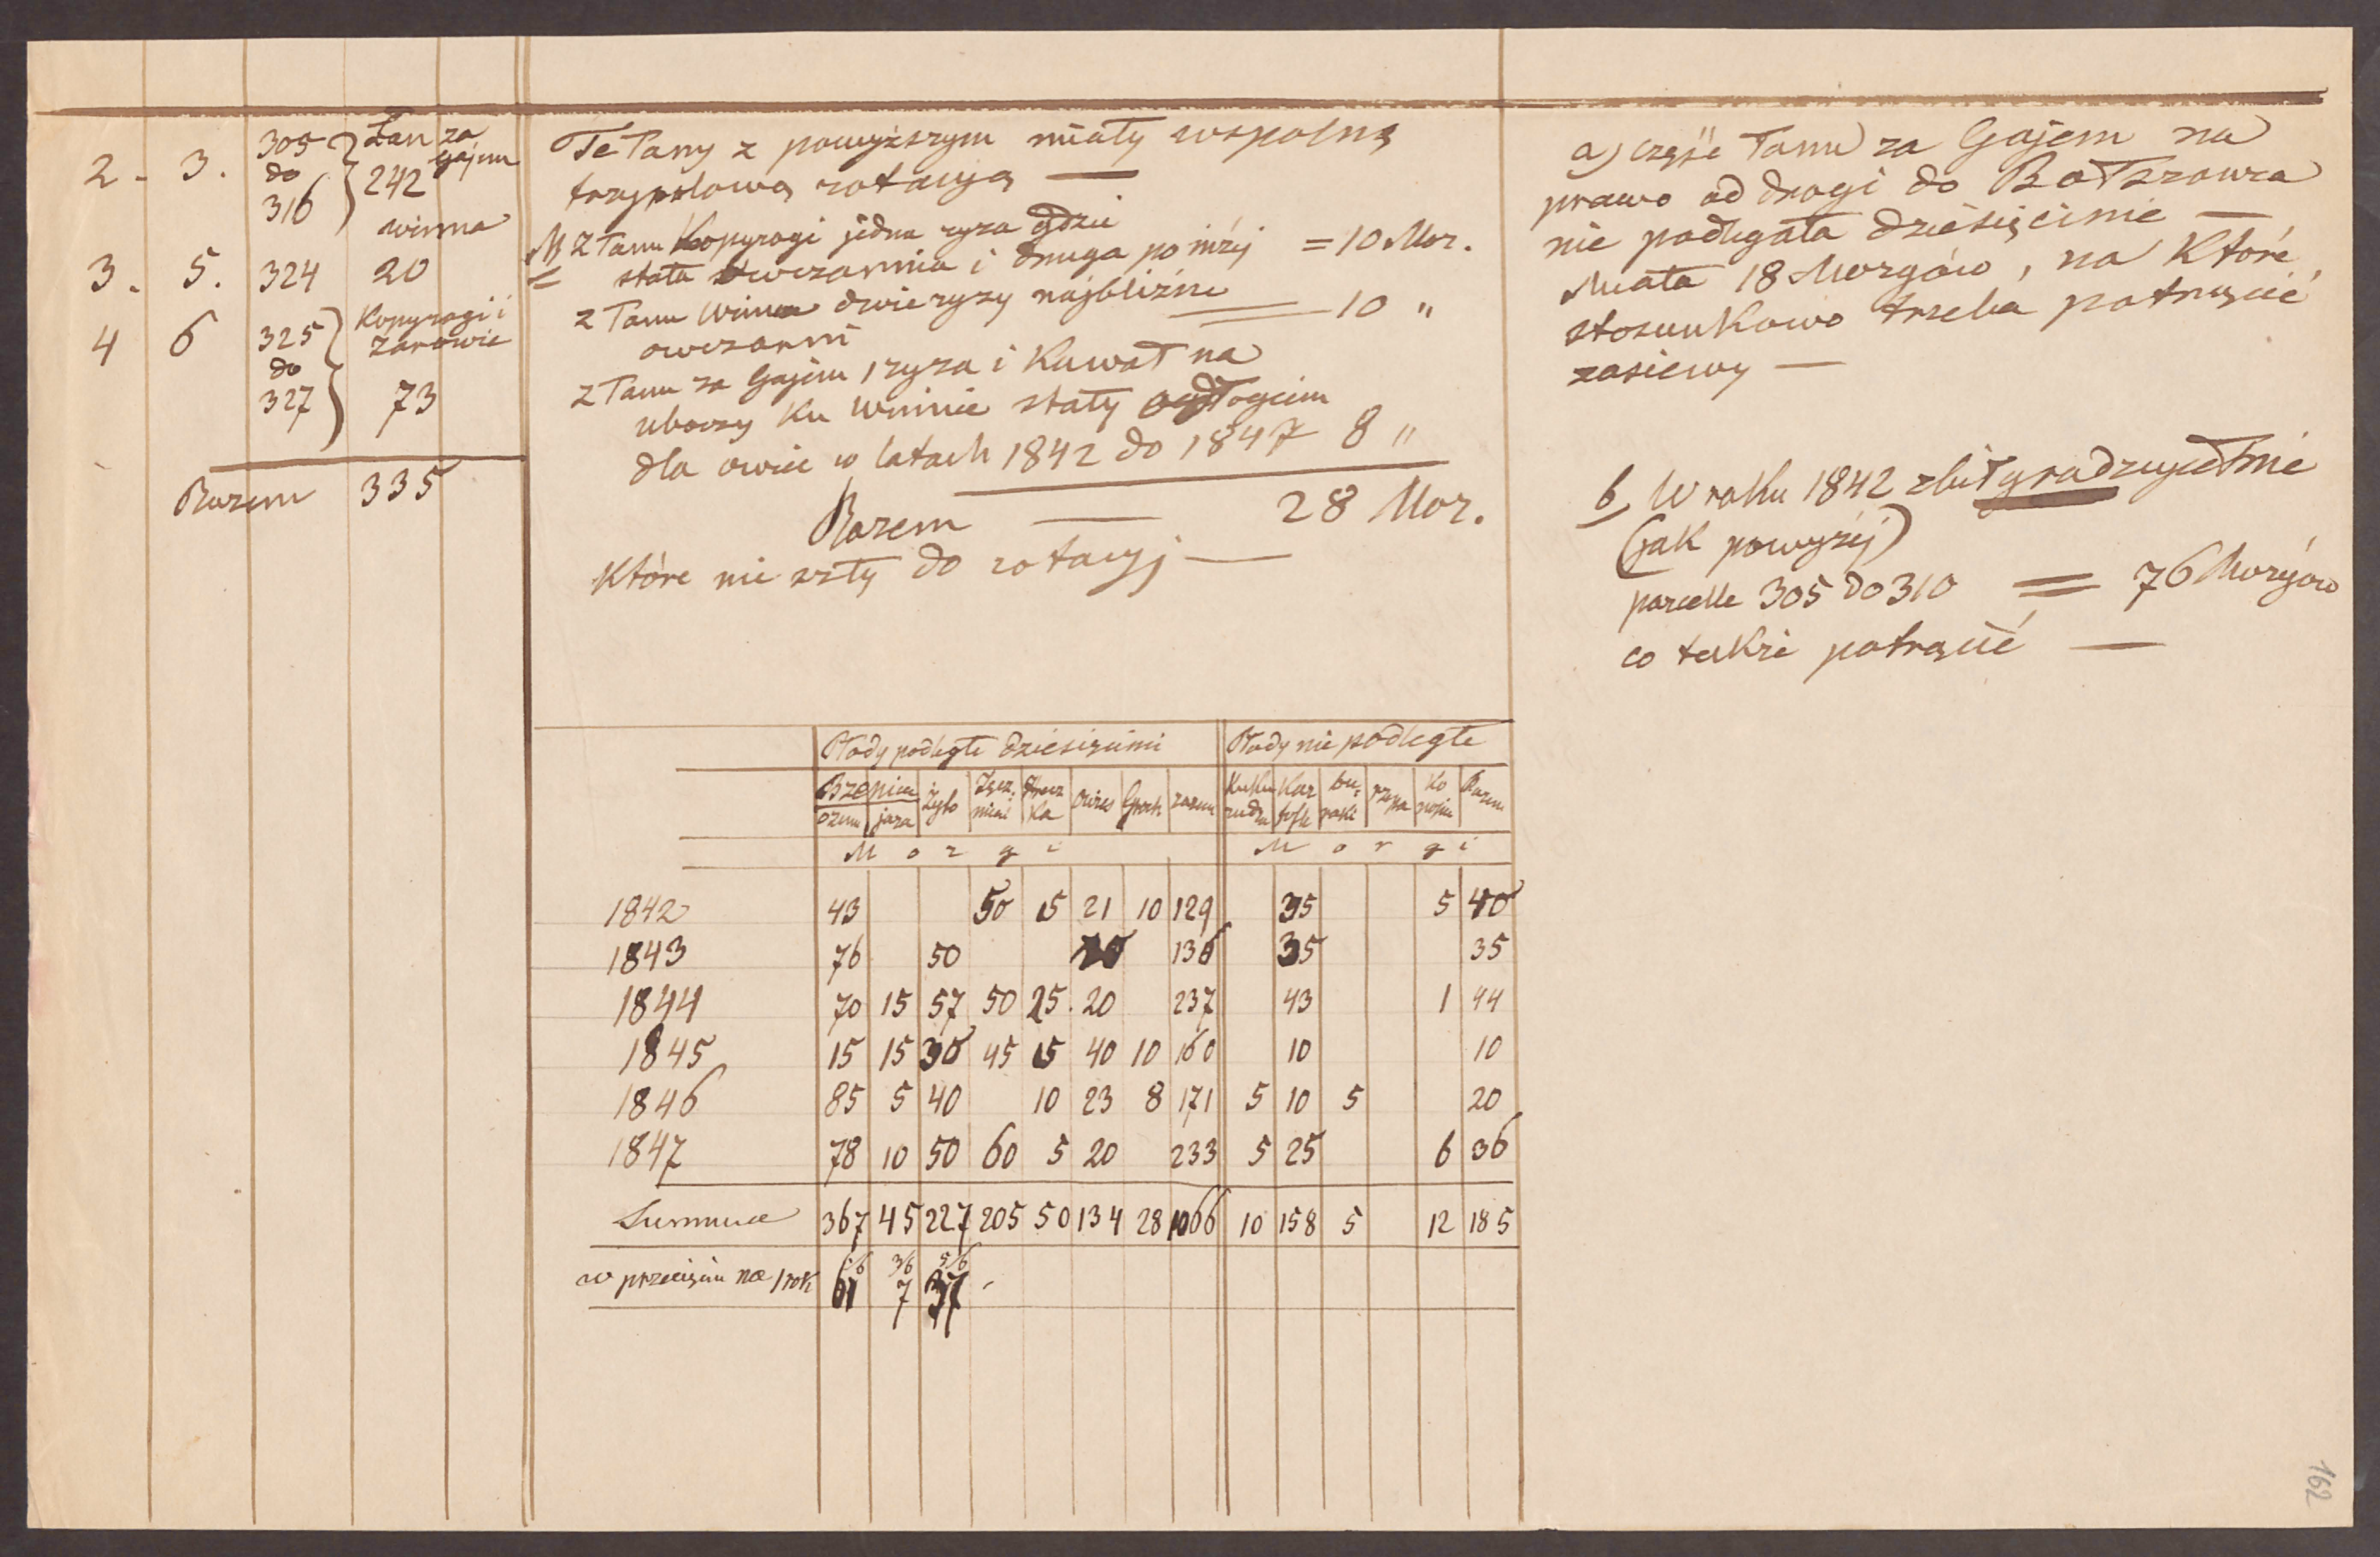 2 - 3. 305 do 316 Łan za Gajem 242
winna
3. 5. 324 20
4 6 325 do 327 Kopyragi i Zarowie 73
Razem 335
Te Łany z powyższym miały wspolną
trzypolową rotacyą —
z Łanu Kopyragi jedna ryza gdzie
stała owczarnia i druga poniżéj = 10 Mor.
z Łanu Winna dwie ryzy najbliżne
owczarni = 10 "
z Łanu za Gajem 1 ryza i Kawał na
uboczy Ku Winnie stały odłogiem
dla owiec w latach 1842 do 1847 8 "
Razem — 28 Mor.
Które nie szły do rotacyj —
a) część Łanu za Gajem na
prawo od drogi do Bołszowca
nie podlegała dziesięcinie —
Miała 18 Morgów, na Które
stosunkowo trzeba potrącić
zasiewy —
b, W roku 1842 zbił grad zupełnie
(jak powyżéj)
parcelle 305 do 310 = 76 Morgów
co także potrącić —
Płody podległe dziesięcinie Płody nie podległe
Pszenica Żyto Jęcz. mień Hrecz Ka Owies Groch razem Kuku rudza Kar tofle bu, raki rzepa Ko nopie Razem
ozim jara
Morgi Morgi
1842 43 50 5 21 10 129 35 5 40
1843 76 50 10 136 35 35
1844 70 15 57 50 25 20 237 43 1 44
1845 15 15 30 45 5 40 10 160 10 10
1846 85 5 40 10 23 8 171 5 10 5 20
1847 78 10 50 60 5 20 233 5 25 6 36
Summa 367 45 227 205 50 134 28 1066 10 158 5 12 185
w przecięciu na 1 rok 61 1/6 7 3/6 37 5/6
162